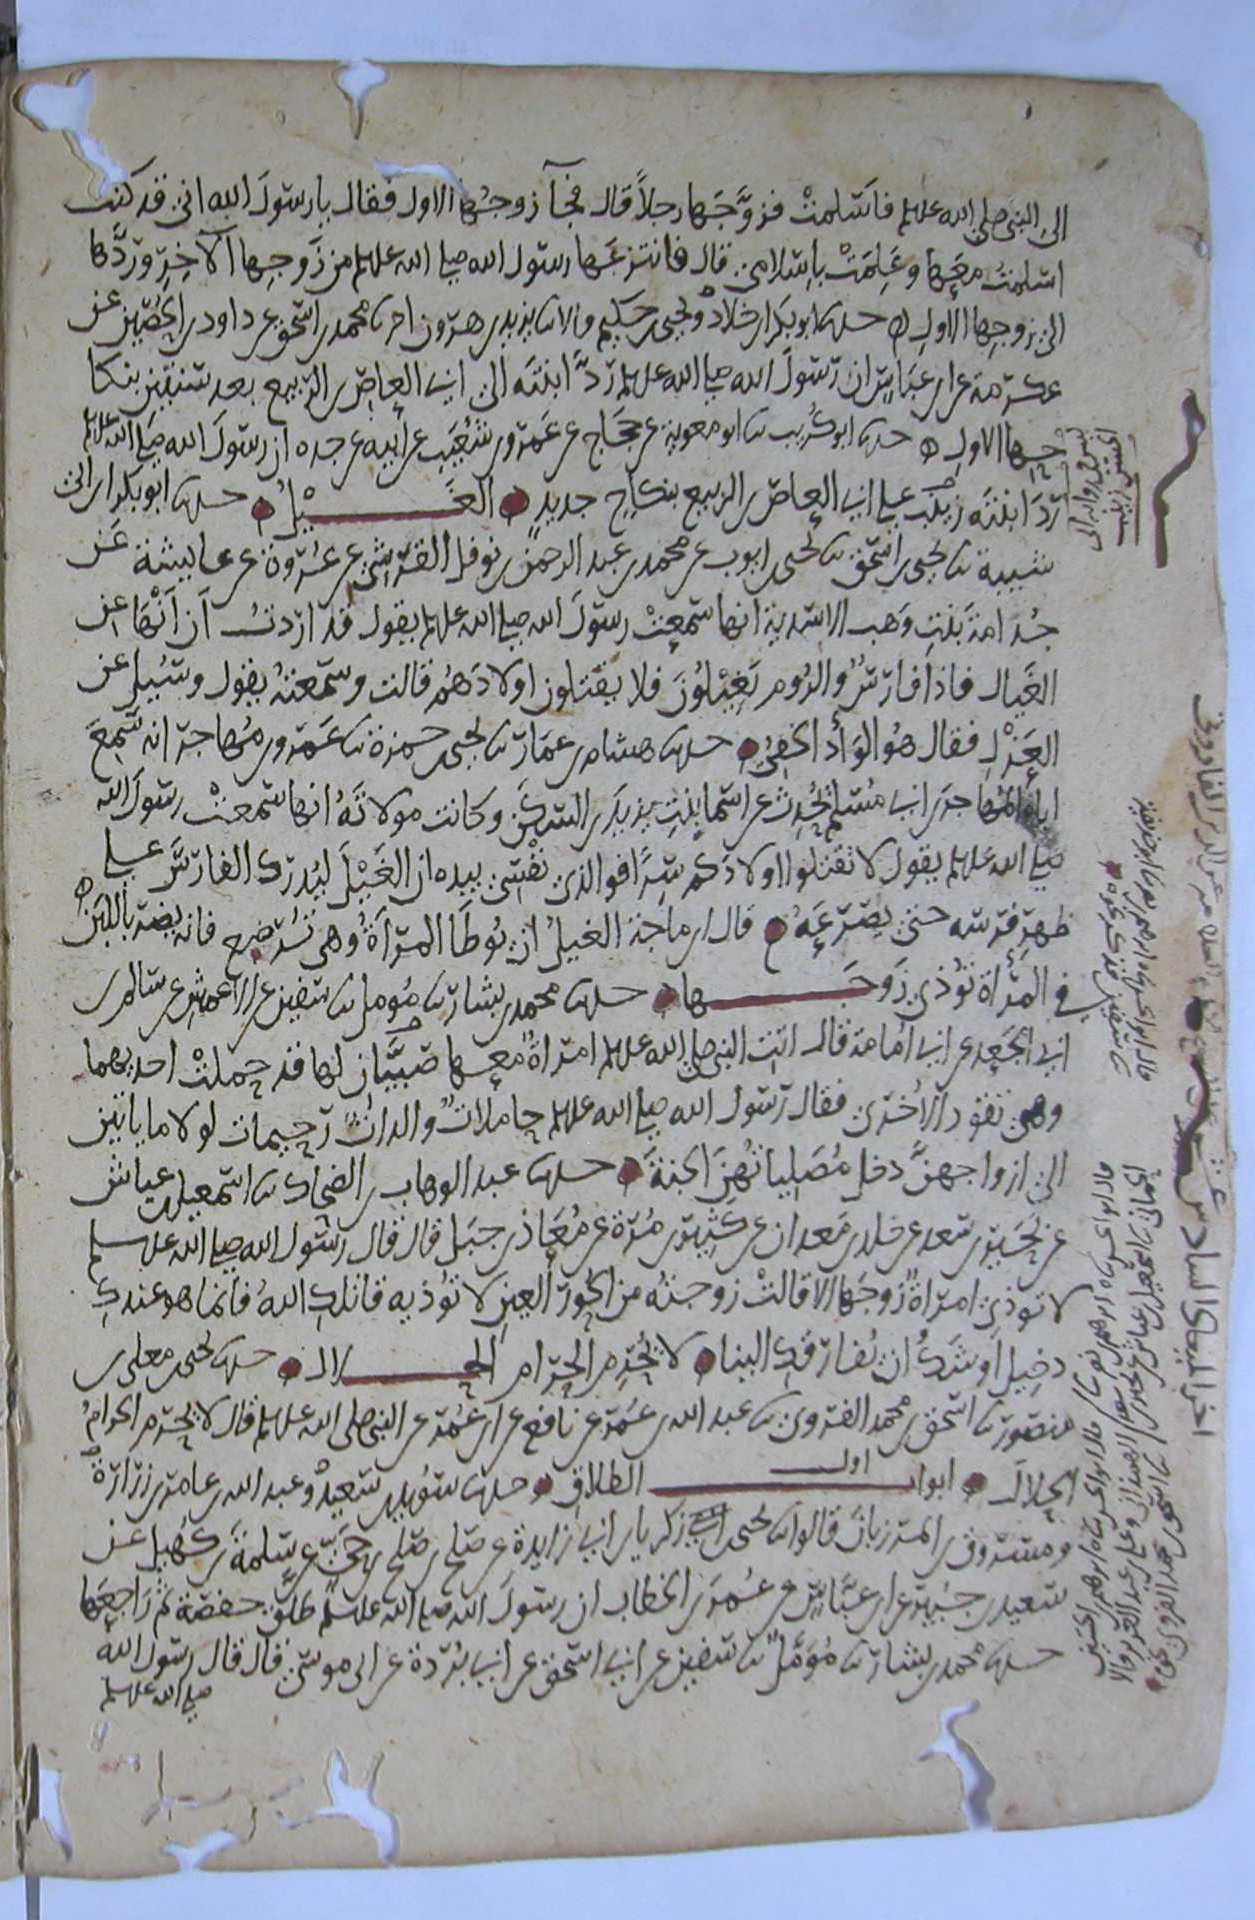 الى النبي صلى الله عليه فاسلمت فزوَّجَها رجلاً قال فجآ زوجُها الاول فقال يا رسولَ الله اني قد كنت
اسلمتُ معَها وعَلِمَتْ باِسلامي قال فانتزعَها رسول الله صلى الله عليه من زَوجِها الآخِرِ وردَّها
الى زوجِها الاولِ حدثنا ابو بكر ابن خلاد ويحيى بن حكيم قالا ثنا يزيد بن هرون انا محمد بن اسحق عن داود بن الحُصَين عن
عكرمة عن ابن عباسٍ ان رسولَ الله صلى الله عليه ردَّ ابنتَه الى ابي العاصِ بن الربيع بعد سنتين بنكا
حِها الاولِ حدثنا ابو كُريب ثنا ابو معوية عن حجاج عن عَمرو بن شُعَيبٍ عن أبيه عن جده ان رسولَ الله صلى الله عليه
ردَّ ابنتَه زينب على ابي العاص بن الربيع بنكاحٍ جديدٍ الغَيْلُ حدثنا ابو بكر ابن ابي
شيبة ثنا يحيى بن اسحق ثنا يحيى بن ايوب عن محمد بن عبد الرحمن بن نوفل القرشي عن عُروة عن عايشة عَن
جُدامةَ بنتِ وَهب الاسدية انها سَمعِتْ رسولَ الله صلى الله عليه يقول قد اردتُ أن أَنْهَا عن
الغَيال فاذا فارسُ والرُوم يَغيْلوُنَ فلا يقتلون اولادَهُم قالت وسَمعتهُ يقول وسُيل عن
العَزْلِ فقال هُو الوَأدُ الخفِيُ حدثنا هشام بن عمار ثنا يحيى بن حمزة ثنا عَمرو بن مُهاجر انه سَمِعَ
اباه المُهاجرَ بن ابي مُسلمٍ يُحدِث عن اسما بنتِ يزيدَ بن السكَن وكانت مولاتَهُ انها سَمعتْ رسولَ الله
صلى الله عليه يقول لا تقتلوا اولادَكم سِرًا فوالذي نفسي بيده ان الغَيْلَ ليُدرَك الفارسَ على
ظهرِ فرسه حتى يصَرعَهُ قال ابن ماجة الغيلُ ان تُوطَا المرأةُ وهي تُرضِع فانه يضر باللبن
في المرأة تُؤذي زَوجَها حدثنا محمد بن بشار ثنا مُومل ثنا سفين عن الاعمش عن سالم بن
ابي الجَعدِ عن ابي اُمامة قال اتتِ النبي صلى الله عليه امراةٌ معَها صَبيَّان لها قد حملتْ احديهما
وهي تقود الاخرى فقال رسولُ الله صلى الله عليه حاملاتٌ والداتٌ رحيمات لولا ما ياتين
الى ازواجهنَّ دخل مُصَلِياتُهن الجنةَ حدثنا عبد الوهاب بن الضحاك ثنا اسمعيل بن عياش
عن بُحَيرِ بن سعد عن خلد بن مَعدان عن كثيرِ بن مُرة عن مُعاذ بن جبَل قال قال رسُولُ الله صلى الله عليه وسلم
لا توذي امراةٌ زَوجَها الا قالتْ زوجتُه من الحُورِ العِين لا تُؤذيه قاتلكِ اللهُ فانما هو عندكِ
دخِيل اَوشكُ ان يُفارقكِ الينا لا يُحَرِّم الحرام الحلال حدثنا يحيى بن معلى بن
منصور ثنا اسحق بن محمد الفروي ثنا عبد الله بن عمر عن نافع عن ابن عُمر عن النبي صلى الله عليه قال لا يحرم الحرامُ
الحلالَ اول ابواب الطلاق حدثنا سُويد بن سَعيد وعبد الله بن عامر بن زرارةَ
ومسروق بن المرزبان قالوا ثنا يحيى بن زكريا بن ابي زايدة عن صلح بن صلح بن حَيّ عن سَلمة بن كُهيل عن
سعيد بن جُبير عن ابن عباسٍ عن عُمرَ بن الخطاب ان رسولَ الله صلى الله عليه وسلم طلق حفصة ثم راجعَها
حدثنا محمد بن بشار ثنا مُؤمَّلٌ ثنا سفين عن ابي اسحق عن ابي بُردة عن ابي موسى قال قال رسول الله
صلى الله عليه